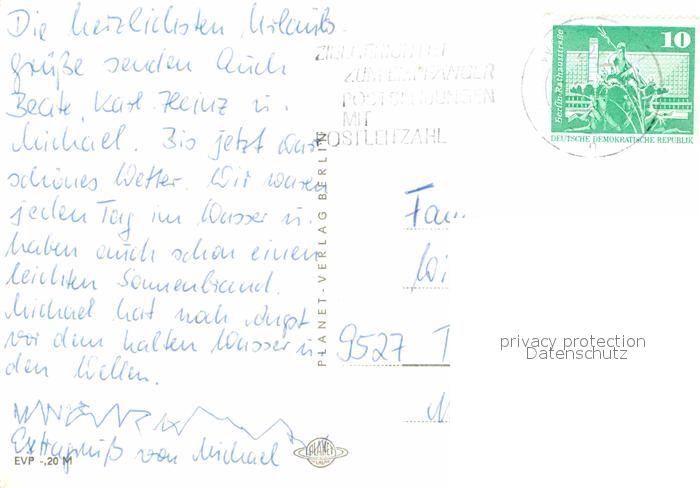 Die herzlichsten Urlaubs-
grüße senden Euch
Beate, Karl-Heinz u.
Michael. Bis jetzt war
schönes Wetter. Wir waren
jeden Tag im Wasser u.
haben auch schon einen
leichten Sonnenbrand.
Michael hat noch Angst
vor dem kalten Wasser u.
den Wellen.
Extragruß von Michael
EVP -,20 M
PLANET
PLANET-VERLAG BERLIN
ZUM EMPFÄNGER
POSTSENDUNGEN
MIT
POSTLEITZAHL
10
Berlin, Rathausstraße
DEUTSCHE DEMOKRATISCHE REPUBLIK
Fam
Wi
9527 T
privacy protection
Datenschutz